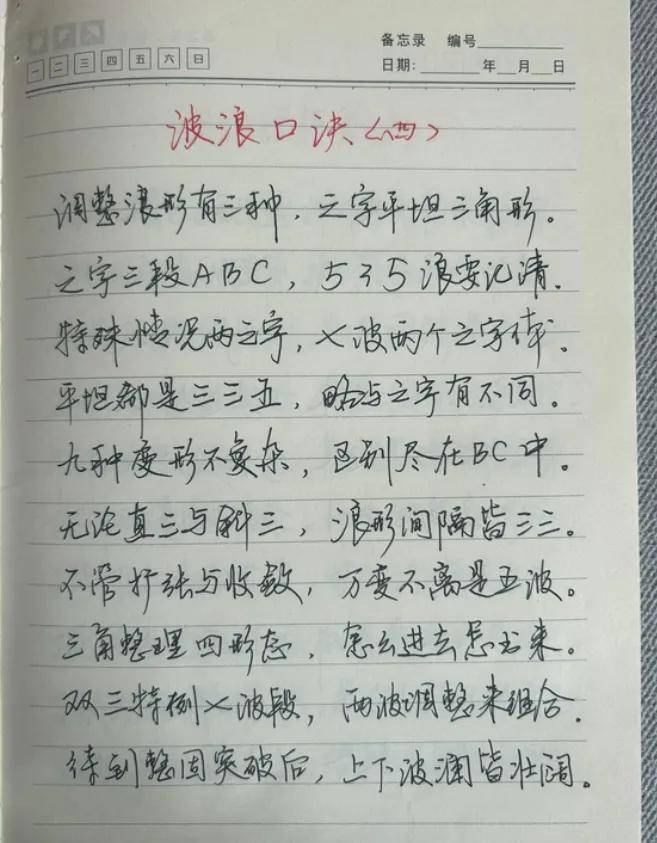 备忘录 编号
一 二 三 四 五 六 日
日期: 年 月 日
波浪口诀(四)
调整浪形有三种，之字平坦三角形。
之字三段ABC，535浪要记清.
特殊情况两之字，X波两个之字体。
平坦都是三三五，略与之字有不同。
九种变形不复杂，区别尽在BC中。
无论直三与斜三，浪形间隔皆三三。
不管扩张与收敛，万变不离是五波。
三角整理四形态，怎么进去怎出来。
双三特例X波段，两波调整来组合.
待到整固突破后，上下波澜皆壮阔。